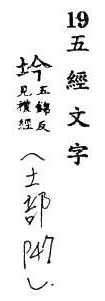 19 五經文字
坅 五錦反
見禮經
(土部 P47)